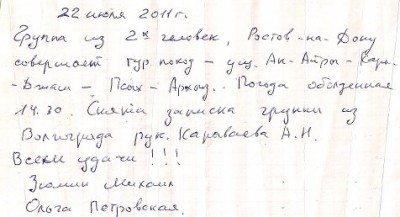 22 июля 2011г.
Группа из 2х человек, Ростов-на-Дону
совершает тур. поход – ущ. Ак-Айры – Кара-
-Джаш – Псыш – Архыз. Погода
14.30. Снята записка группы из
Волгограда рук. Караваева А.Н.
Всем удачи!!!
Зюмин Михаил
Ольга Петровская.